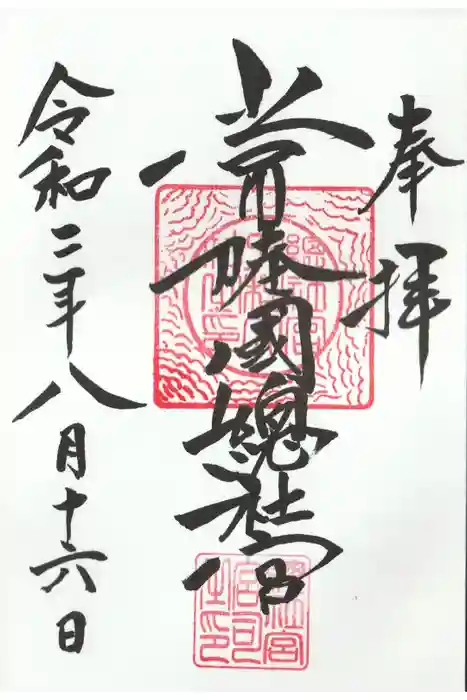 奉拝
常陸國總社宮
令和二年八月十六日